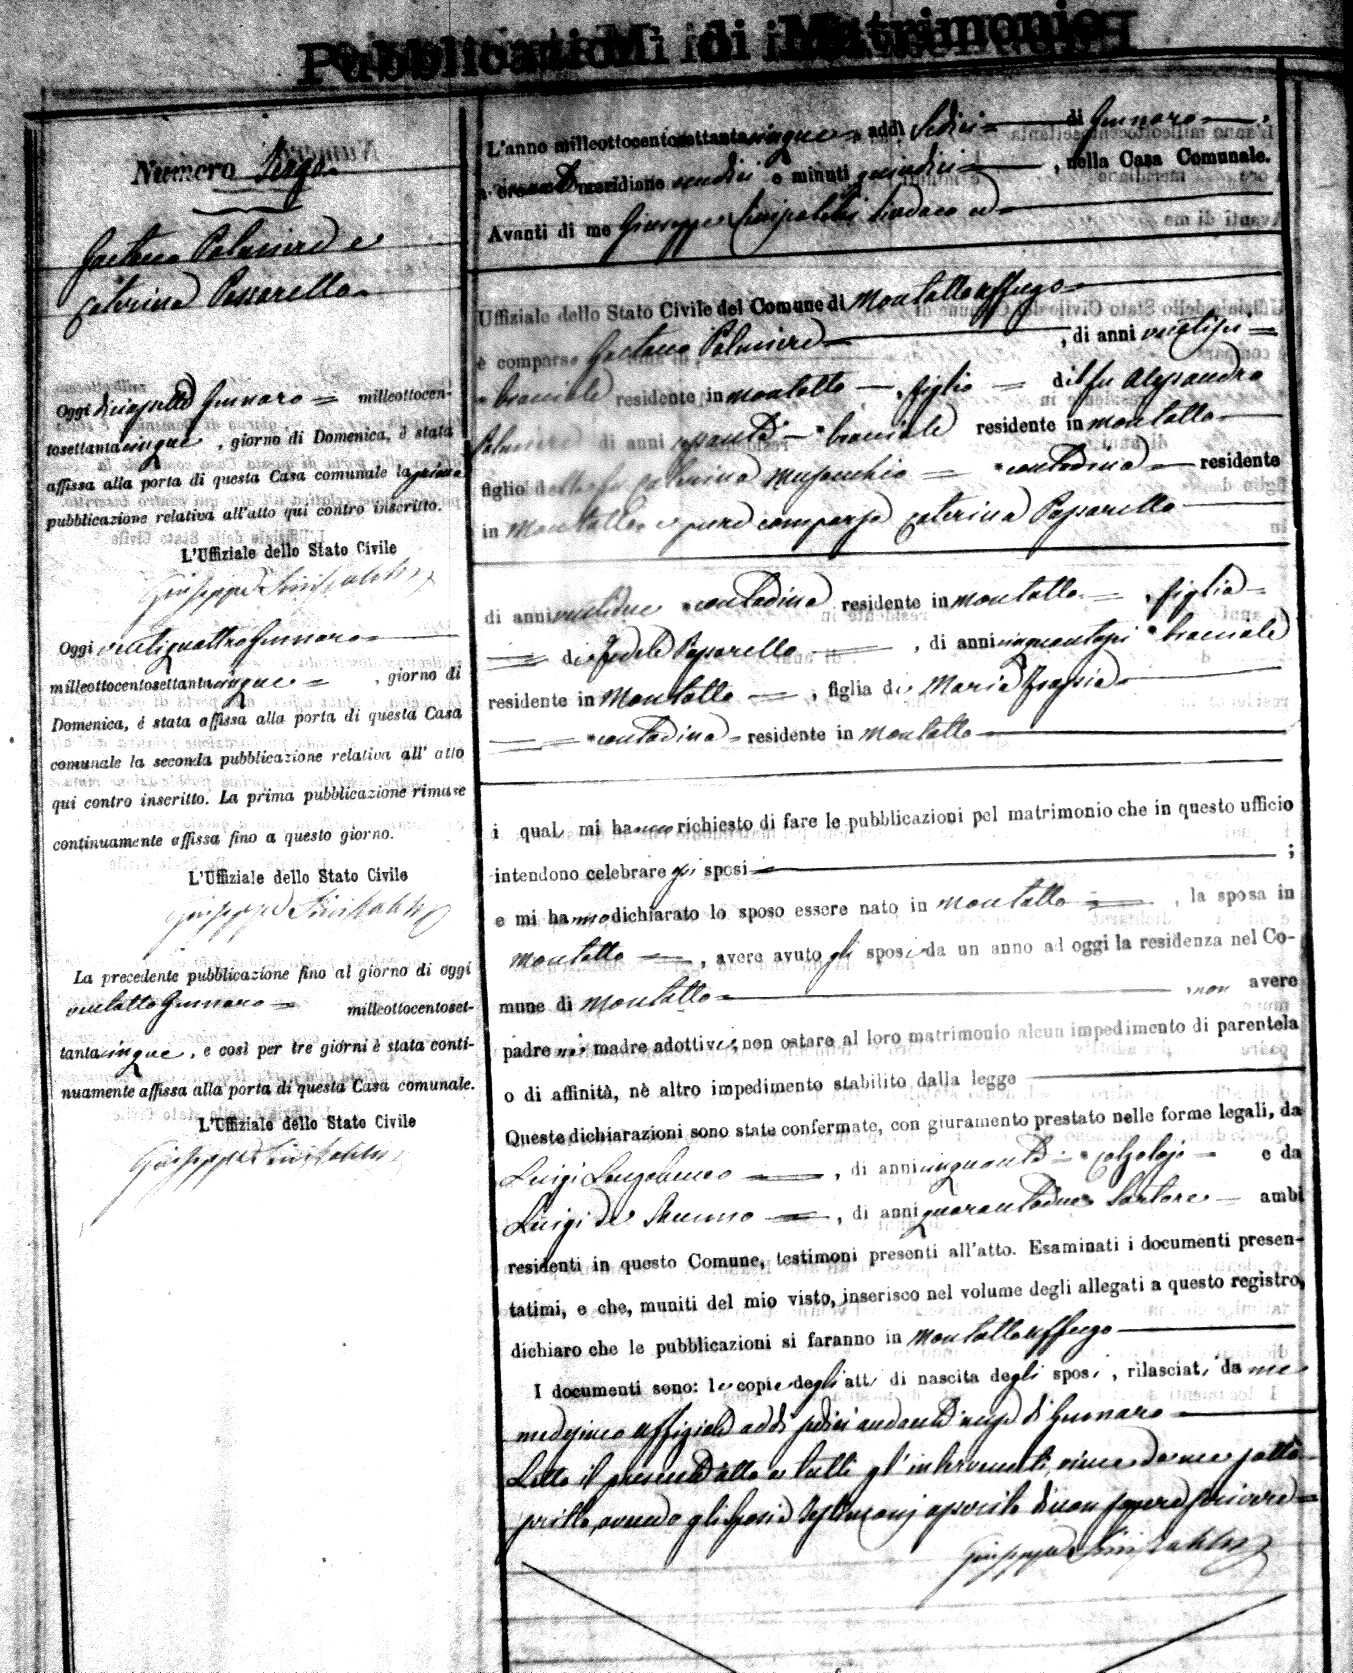 Pubblicazioni di Matrimonio
Numero Terzo
Gaetano Palmieri e
Caterina Passarella
Oggi diciassette Gennaro milleottocen-
tosettantacinque, giorno di Domenica, è stata
affissa alla porta di questa Casa comunale la prima
pubblicazione relativa all'atto qui contro inscritto.
L'Uffiziale dello Stato Civile
Giuseppe Sinipaldi
Oggi ventiquattro Gennaro
milleottocentosettantacinque, giorno di
Domenica, è stata affissa alla porta di questa Casa
comunale la seconda pubblicazione relativa all' atto
qui contro inscritto. La prima pubblicazione rimase
continuamente affissa fino a questo giorno.
L'Uffiziale dello Stato Civile
Giuseppe
La precedente pubblicazione fino al giorno di oggi
ventotto Gennaro milleottocentoset-
tantacinque, e così per tre giorni è stata conti-
nuamente affissa alla porta di questa Casa comunale.
L'Uffiziale dello Stato Civile
Giuseppe
L'anno milleottocentosettantacinque, addì Sedici di Gennaro,
a ore meridiane undici e minuti quindici, nella Casa Comunale.
Avanti di me Giuseppe Sindaco ed
Uffiziale dello Stato Civile del Comune di Montalto uffugo
è comparso Gaetano Palmieri, di anni ventisei
bracciale residente in Montalto, figlio di fu Alessandro
di anni sessanta bracciale residente in Montalto
figlio della fu Caterina Musacchio contadina residente
in Montalto e pure comparsa Caterina Passarella
di anni ventidue contadina residente in Montalto, figlia
di Fedele Passarella, di anni cinquantasei bracciale
residente in Montalto, figlia di Maria
contadina residente in Montalto
i quali mi hanno richiesto di fare le pubblicazioni pel matrimonio che in questo ufficio
intendono celebrare gli sposi ;
e mi hanno dichiarato lo sposo essere nato in Montalto, la sposa in
Montalto, avere avuto gli sposi da un anno ad oggi la residenza nel Co-
mune di Montalto, non avere
padre nè madre adottivi; non ostare al loro matrimonio alcun impedimento di parentela
o di affinità, nè altro impedimento stabilito dalla legge
Queste dichiarazioni sono state confermate, con giuramento prestato nelle forme legali, da
Luigi, di anni cinquanta calzolajo e da
Luigi de, di anni quarantadue Sartore ambi
residenti in questo Comune, testimoni presenti all'atto. Esaminati i documenti presen-
tatimi, e che, muniti del mio visto, inserisco nel volume degli allegati a questo registro,
dichiaro che le pubblicazioni si faranno in Montalto uffugo
I documenti sono: le copie degli atti di nascita degli sposi, rilasciati da me
medesimo uffiziale addì sedici andante mese di Gennaro
Letto il presente atto a tutti gl'intervenuti, viene da me sotto-
scritto, avendo gli sposi e testimonj asserito di non sapere scrivere
Giuseppe